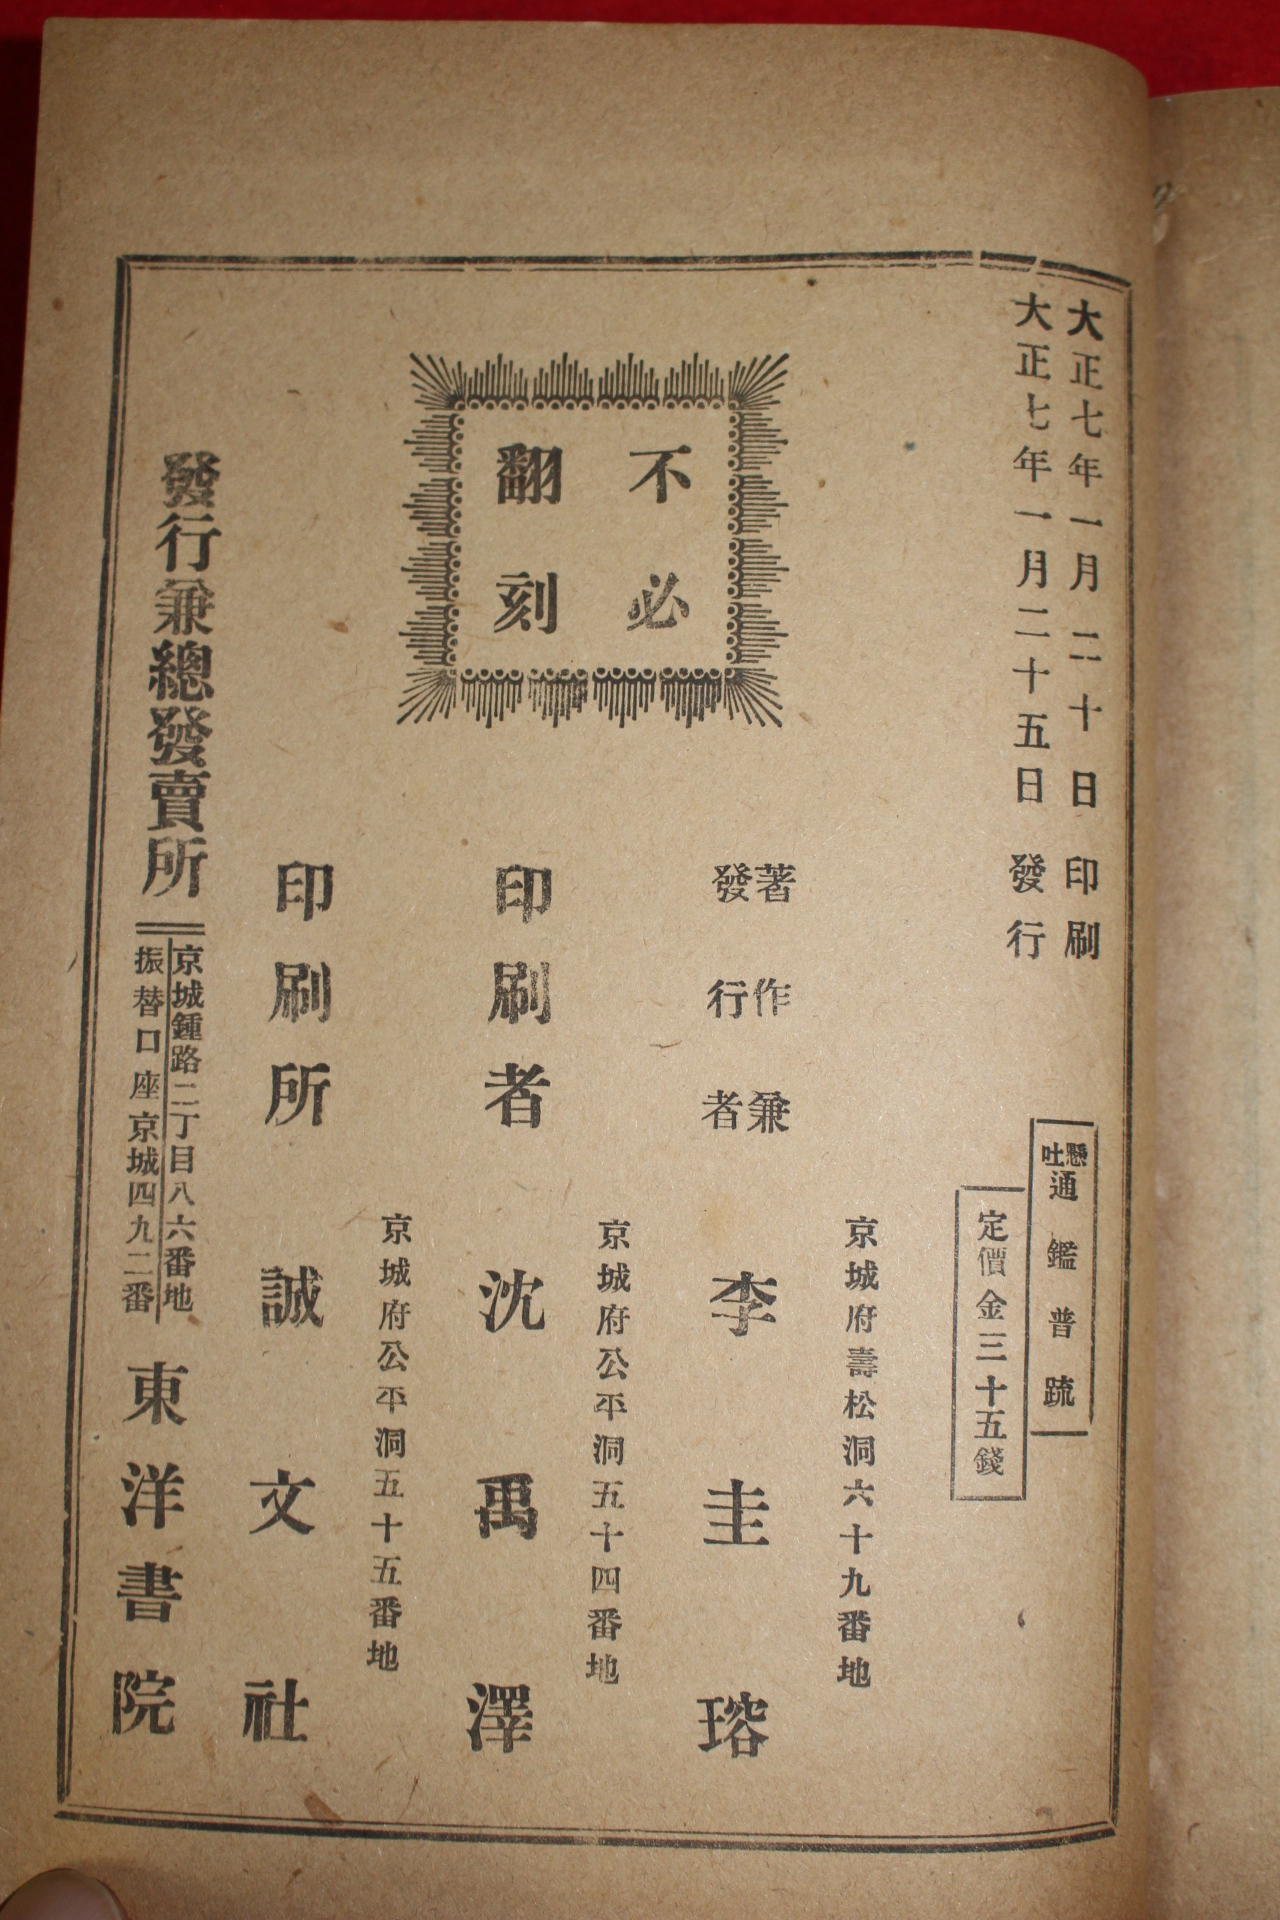 大正七年一月二十日印刷
大正七年一月二十五日發行
懸吐通鑑普疏
定價金三十五錢
不必
翻刻
著作兼
發行者
京城府壽松洞六十九番地
李圭瑢
印刷者
京城府公平洞五十四番地
沈禹澤
印刷所
京城府公平洞五十五番地
誠文社
發行兼總發賣所
京城鍾路二丁目八六番地
振替口座京城四九二番
東洋書院